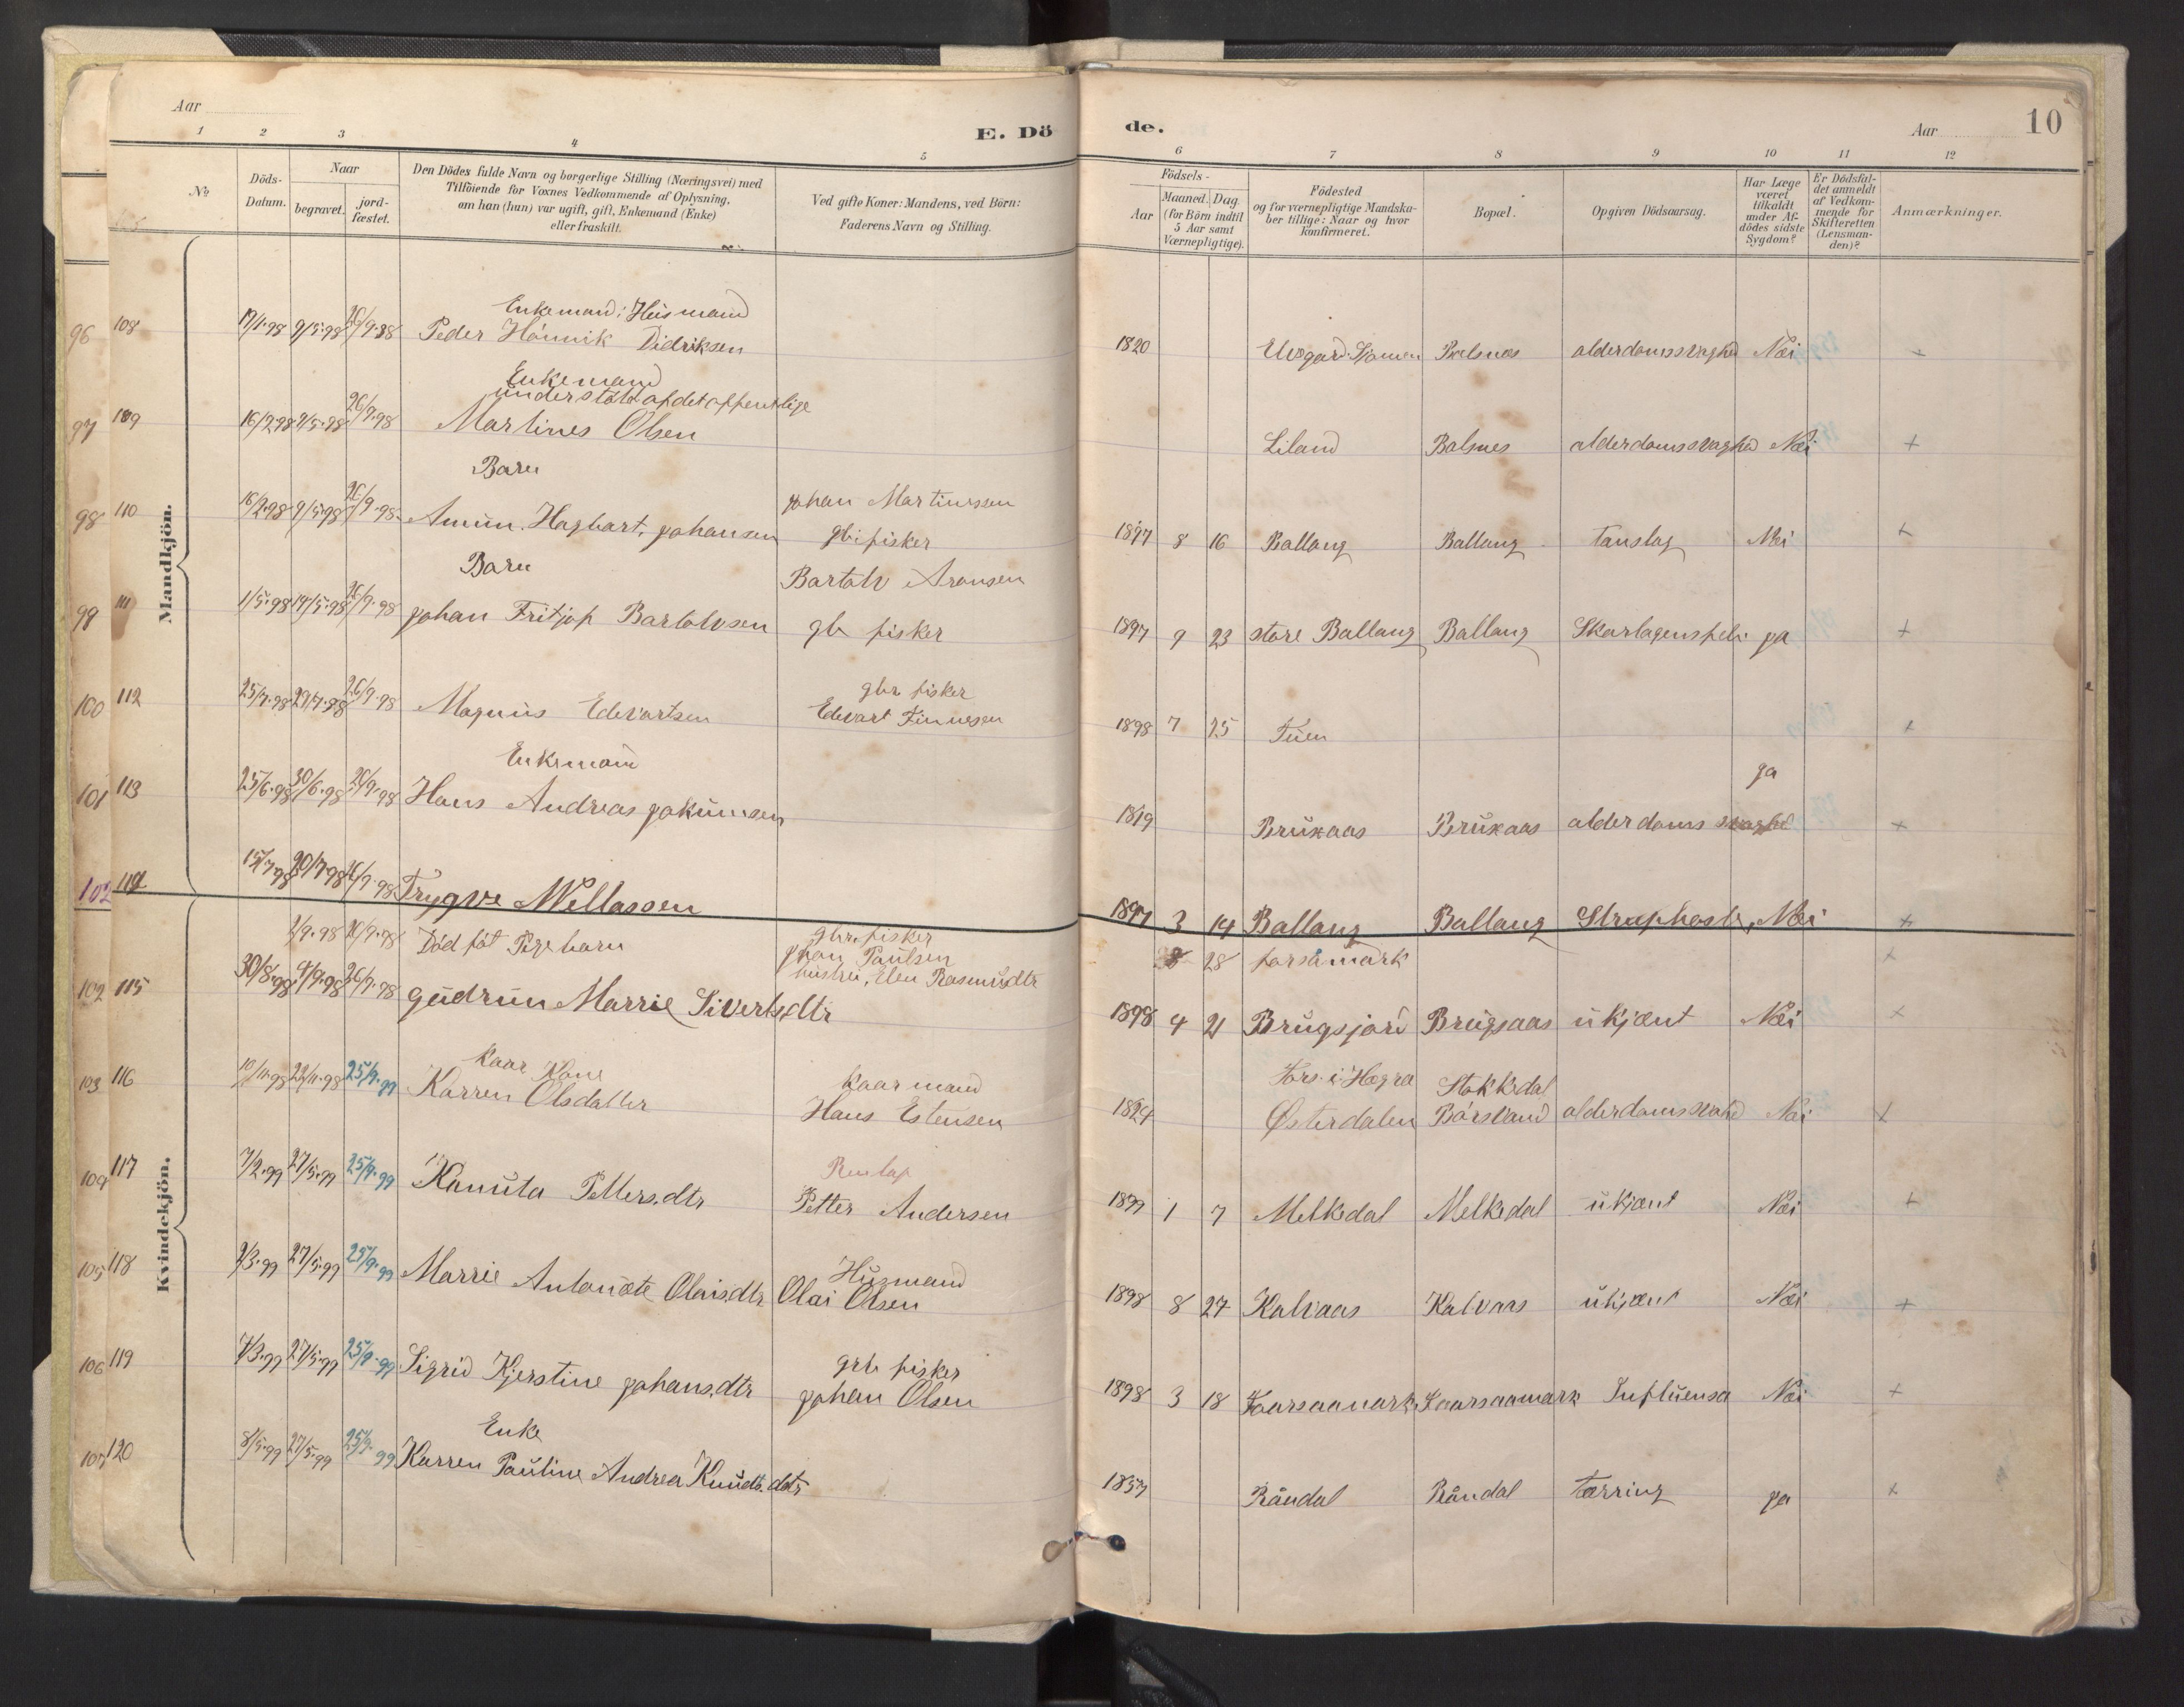 Aar
E. Dö
1 2 3 4 5
No
Döds-
Datum.
Naar
begravet.
jord-
fæstet.
Den Dödes fulde Navn og borgerlige Stilling (Næringsvei) med
Tilföiende for Voxnes Vedkommende af Oplysning,
om han (hun) var ugift, gift, Enkemand (Enke)
eller fraskilt.
Ved gifte Koner: Mandens, ved Börn:
Faderens Navn og Stilling.
de.
Aar
10
6 7 8 9 10 11 12
Födsels-
Aar
Maaned. Dag.
(for Börn indtil
5 Aar samt
Værnepligtige).
Födested
og for værnepligtige Mandska-
ber tillige: Naar og hvor
konfirmeret.
Bopæl.
Opgiven Dödsaarsag.
Har Læge
været
tilkaldt
under Af-
dödes sidste
Sygdom?
Er Dödsfal-
det anmeldt
af Vedkom-
mende for
Skifteretten
(Lensman-
den)?
Anmærkninger.
Mandkjön.
Enkemand; Husmand
96 108 9/5.98 Peder Didriksen 1820 Balsnes alderdomssvaghed Nei +
Enkemand
understötet af det offentlige
97 109 16/2 98 9/5.98 26/9.98 Martines Olsen Liland Balsnes alderdomssvaghed Nei +
Barn
Johan Martinssen
98 110 16/2.98 9/5.98 26/9.98 Amun. Hagbart. Johansen gbr fisker 1897 8 16 Ballang Ballang Nei +
Barn
Bartolv Aronsen
99 111 1/5.98 14/5.98 26/9.98 Johan Fritjof Bartolvsen gbr fisker 1897 9 23 store Ballang Ballang Skarlagensfeb. ja +
gbr fisker
100 112 25/7.98 29/7.98 26/9.98 Magnus Edevartsen Edevart Finnesen 1898 7 25 +
Enkemand
ja
101 113 25/6.98 30/6.98 26/9.98 Hans Andreas Jakumsen 1819 Brukaas Brukaas alderdoms svaghed +
102 114 15/7 98 20/7 98 26/9.98 Trygve Mellassen 1897 3 14 Ballang Ballang Struphoste, Nei +
Kvindekjön.
2/9.98 26/9.98 Död föt Pige barn gbr. fisker
Johan Paulsen
hustru, Elen Rasmusdtr
8 28 forsåmark +
102 115 30/8.98 4/9.98 26/9.98 Gudrun Marrie Sivertsdtr 1898 4 21 Brugsjord Brugsaas ukjent Nei +
Kaar Kone
Kaarmand
Fors. i. Hegra Stokkedal
103 116 25/9.99 Karren Olsdatter Hans Estensen Østerdalen Börsvand Nei +
Renlap
104 117 7/2.99 27/5.99 25/9.99 Kanuta Petters.dtr Petter Andersen 1899 1 7 Melkedal Melkedal ukjent Nei +
Husmand
105 118 27/5.99 25/9.99 Marrie Antonete Olaisdtr Olai Olsen 1898 8 27 Kalvaas Kalvaas ukjent Nei +
grb fisker
106 119 27/5.99 25/9.99 Sigrid Kjerstine Johans.dtr Johan Olsen 1898 3 18 Faarsaamark Faarsaamark Influensa Nei +
Enke
107 120 8/5.99 27/5.99 25/9.99 Karren Pauline Andrea Knuds.datr 1857 Råndal Råndal tærring ja +